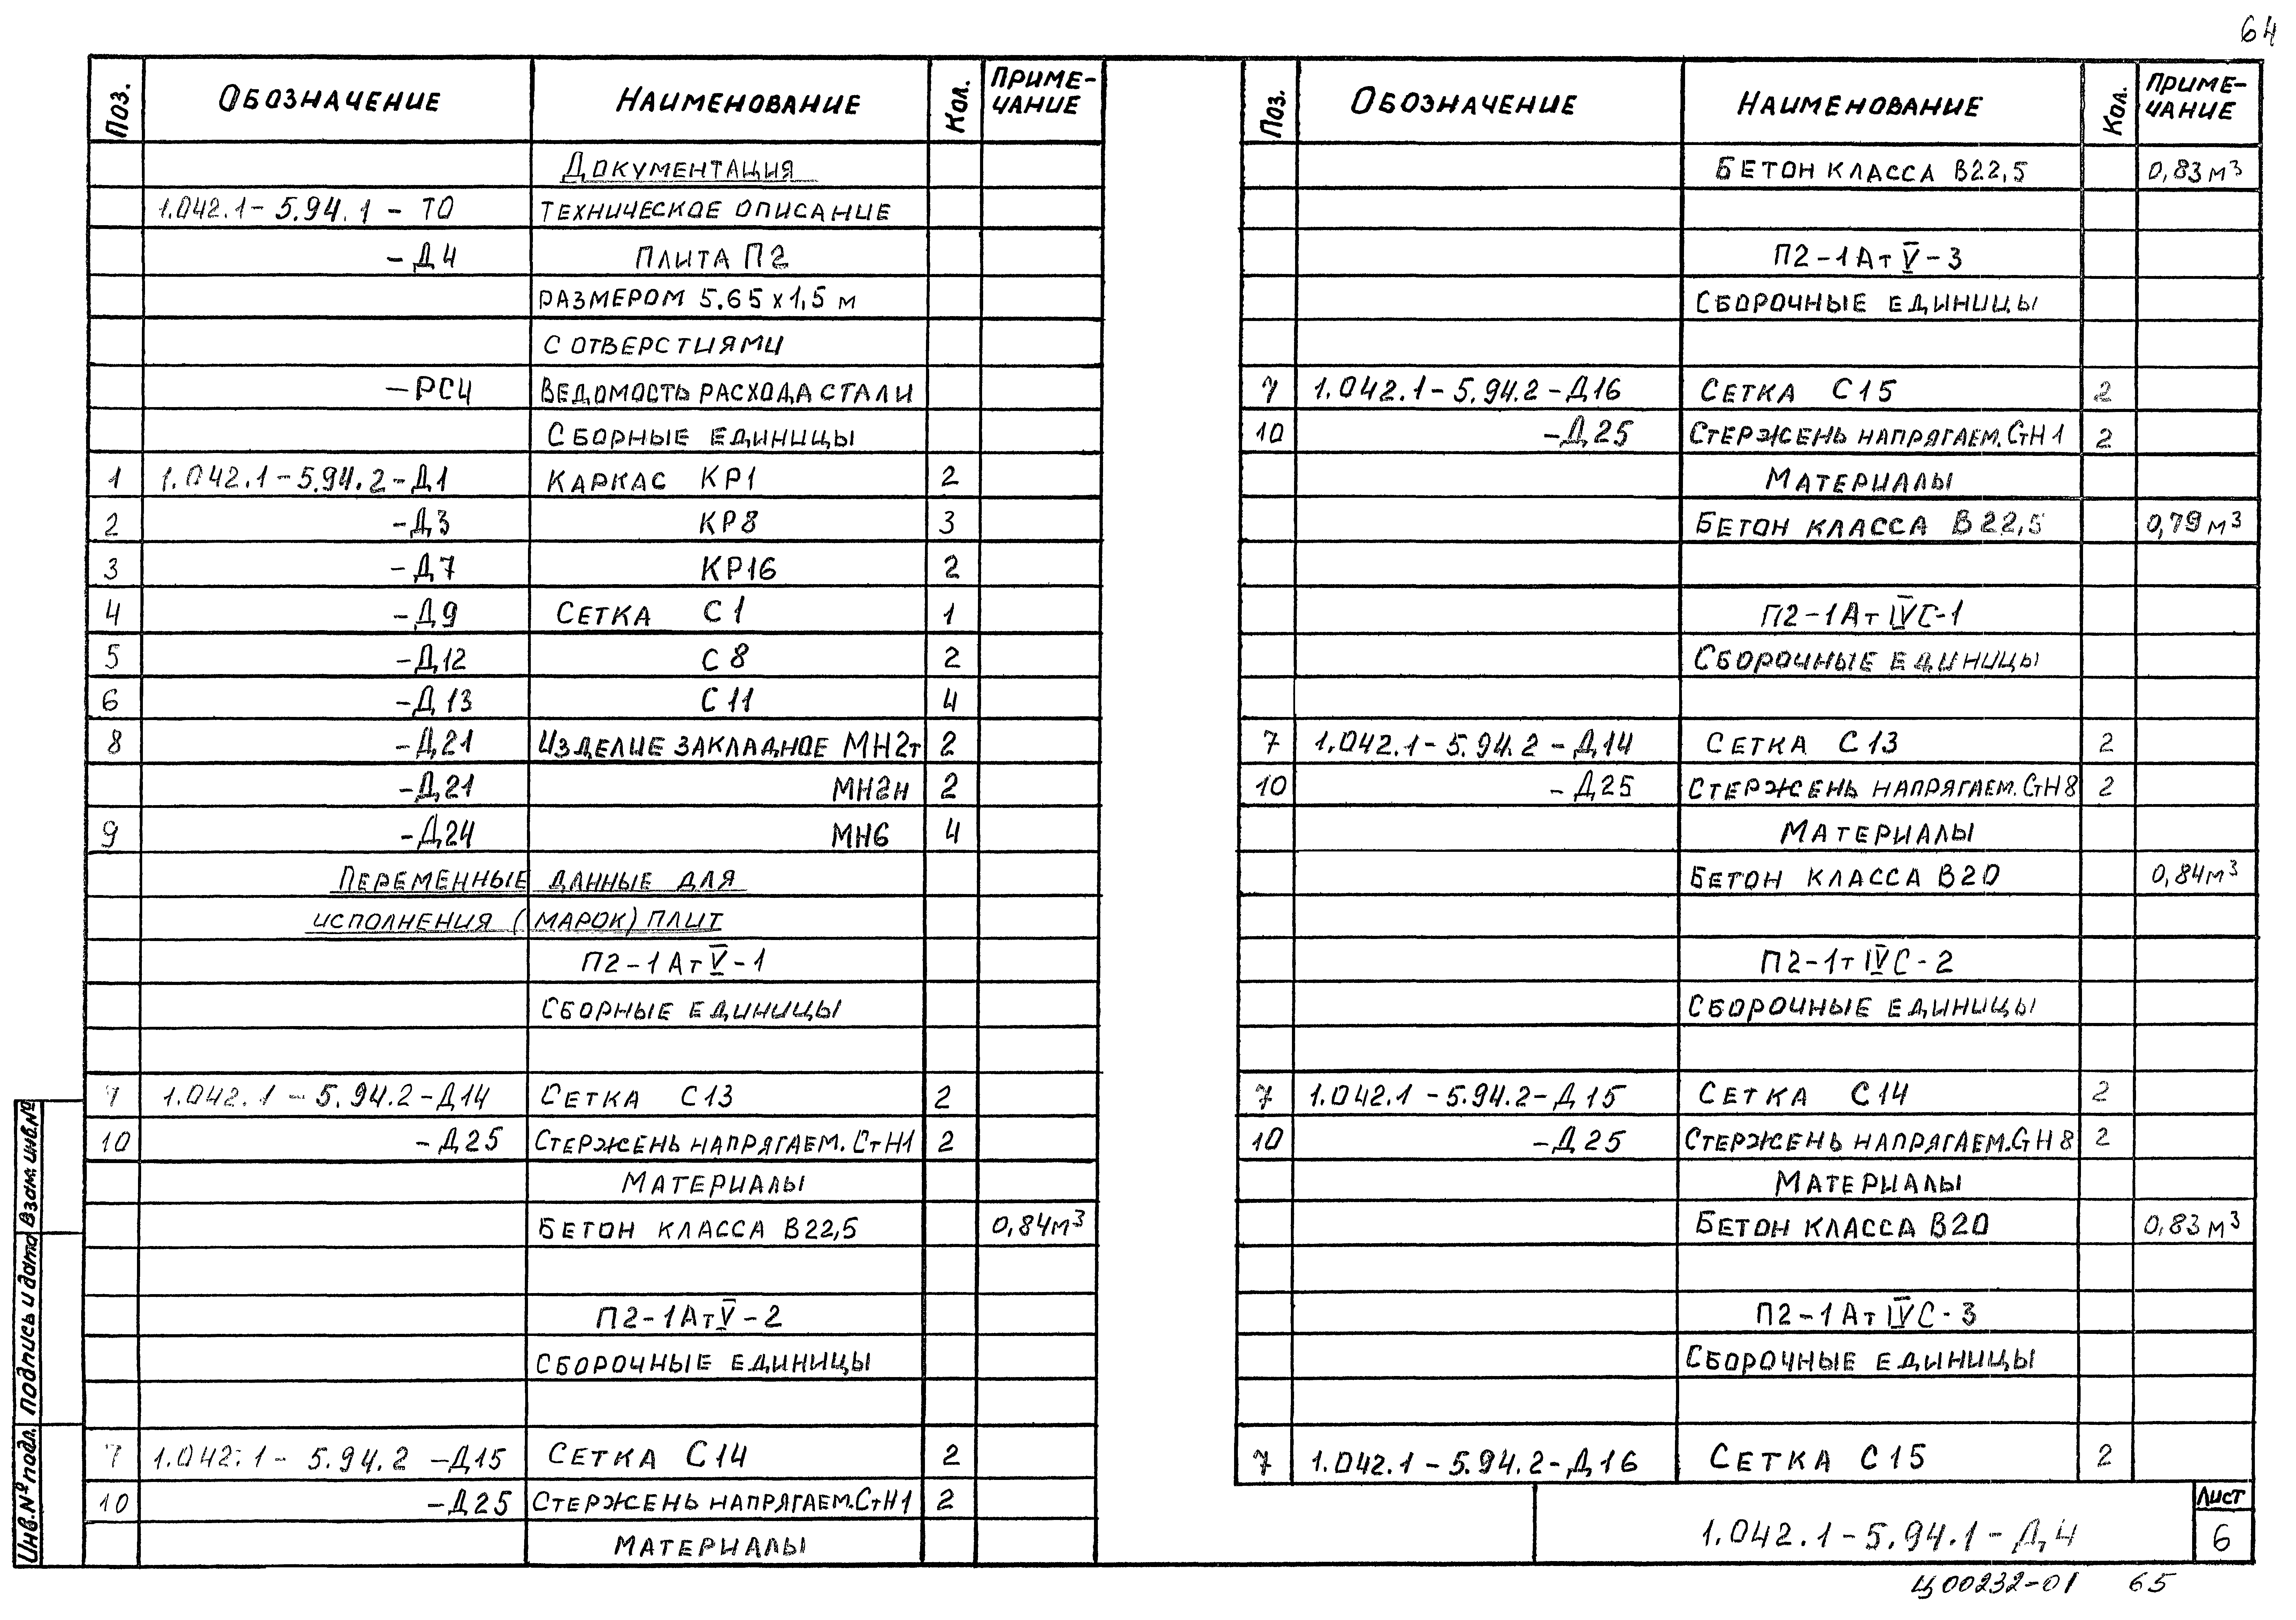 64
Поз. Обозначение Наименование Кол. Приме-
чание
Документация
1.042.1-5.94.1-ТО Техническое описание
-Д4 Плита П2
размером 5.65х1,5 м
с отверстиями
-РС4 Ведомость расхода стали
Сборные единицы
1 1.042.1-5.94.2-Д1 Каркас КР1 2
2 -Д3 КР8 3
3 -Д7 КР16 2
4 -Д9 Сетка С1 1
5 -Д12 С8 2
6 -Д13 С11 4
8 -Д21 Изделие закладное МН2т 2
-Д21 МН2н 2
9 -Д24 МН6 4
Переменные данные для
исполнения (марок) плит
П2-1АтV-1
Сборные единицы
7 1.042.1-5.94.2-Д14 Сетка С13 2
10 -Д25 Стержень напрягаем. СтН1 2
Материалы
Бетон класса В22,5 0,84м³
П2-1АтV-2
Сборочные единицы
7 1.042.1-5.94.2-Д15 Сетка С14 2
10 -Д25 Стержень напрягаем. СтН1 2
Материалы
Поз. Обозначение Наименование Кол. Приме-
чание
Бетон класса В22,5 0,83м³
П2-1АтV-3
Сборочные единицы
7 1.042.1-5.94.2-Д16 Сетка С15 2
10 -Д25 Стержень напрягаем. СтН1 2
Материалы
Бетон класса В22,5 0,79м³
П2-1АтIVС-1
Сборочные единицы
7 1.042.1-5.94.2-Д14 Сетка С13 2
10 -Д25 Стержень напрягаем. СтН8 2
Материалы
Бетон класса В20 0,84м³
П2-1тIVС-2
Сборочные единицы
7 1.042.1-5.94.2-Д15 Сетка С14 2
10 -Д25 Стержень напрягаем. СтН8 2
Материалы
Бетон класса В20 0,83м³
П2-1АтIVС-3
Сборочные единицы
7 1.042.1-5.94.2-Д16 Сетка С15 2
Инв.№ подл. Подпись и дата Взам. инв.№
1.042.1-5.94.1-Д4
Лист
6
Ц00232-01 65